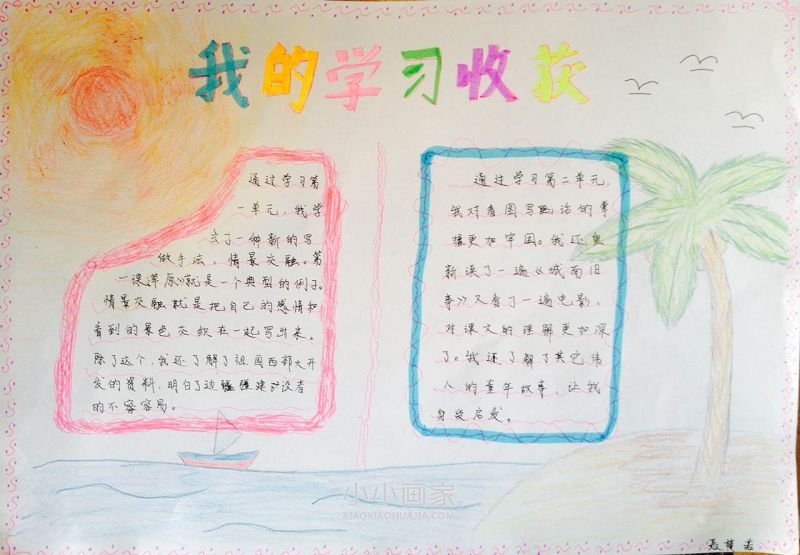 我的学习收获
通过学习第
一单元,我学
会了一种新的写
做手法,情景交融。第
一课《草原》就是一个典型的例子。
情景交融就是把自己的感情和
看到的景色交织在一起写出来。
除了这个,我还了解了祖国西部大开
发的资料,明白了边疆建设者
的不容易。
通过学习第二单元,
我对看图写话的掌
握更加牢固。我还重
新读了一遍《城南旧
事》又看了一遍电影,
对课文的理解更加深
了。我还了解了其它伟
人的童年故事,让我
身受启发。
小小画家
XIAOXIAOHUAJIA.COM